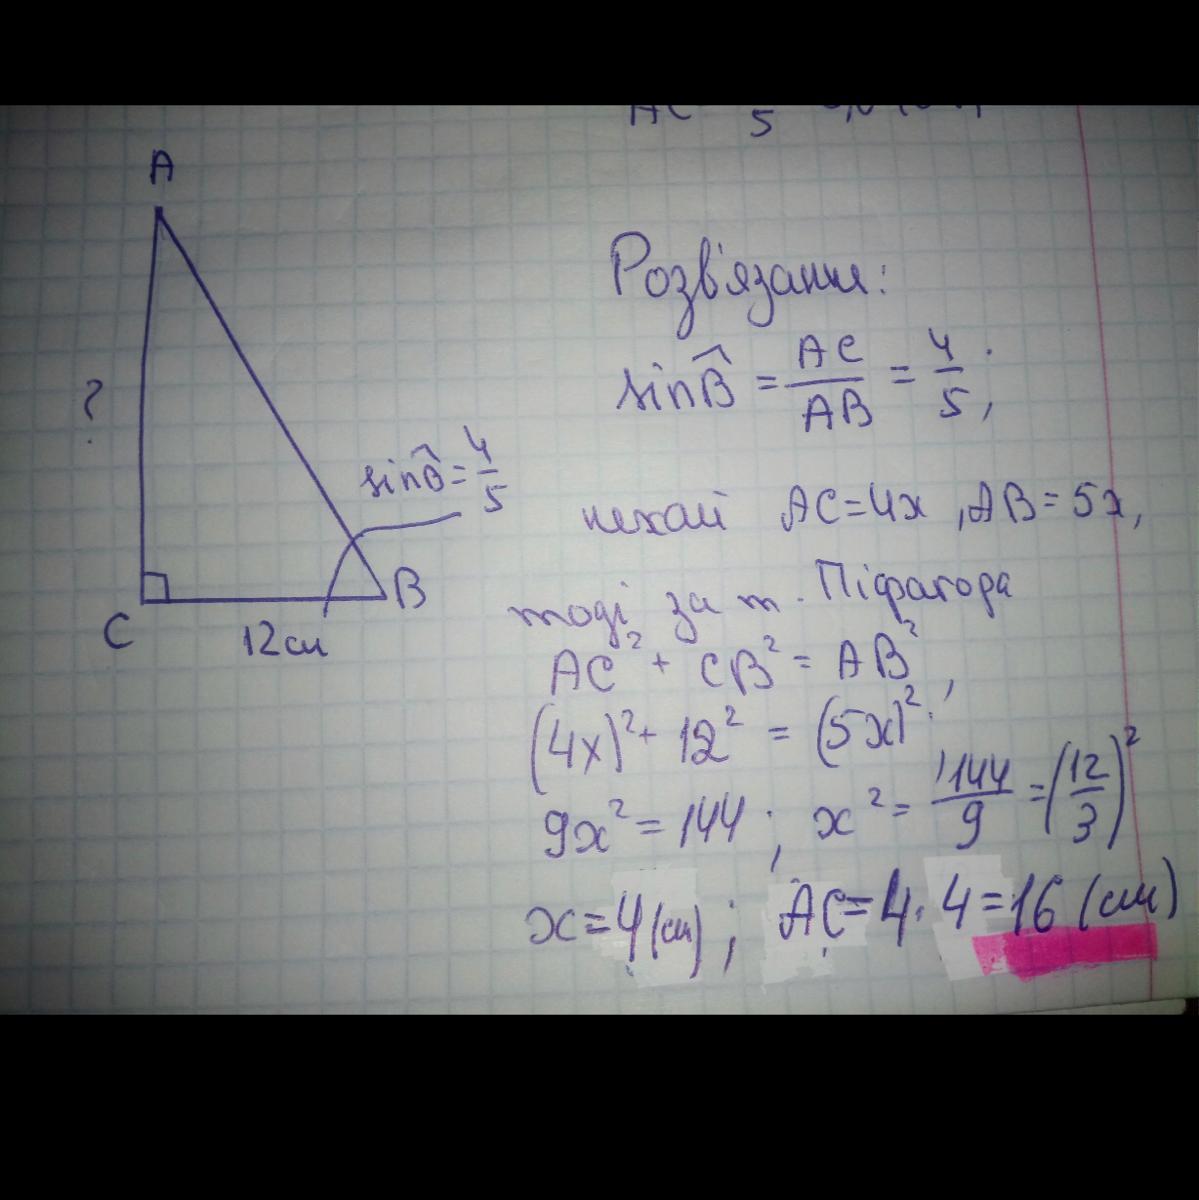 A
?
sinB̂ = 4/5
C
B
12см
Розв'язання:
sinB̂ = AC/AB = 4/5;
нехай AC=4x, AB=5x,
тоді за т. Піфагора
AC² + CB² = AB²,
(4x)² + 12² = (5x)²;
9x² = 144; x² = 144/9 = (12/3)²
x=4(см); AC=4·4=16(см)